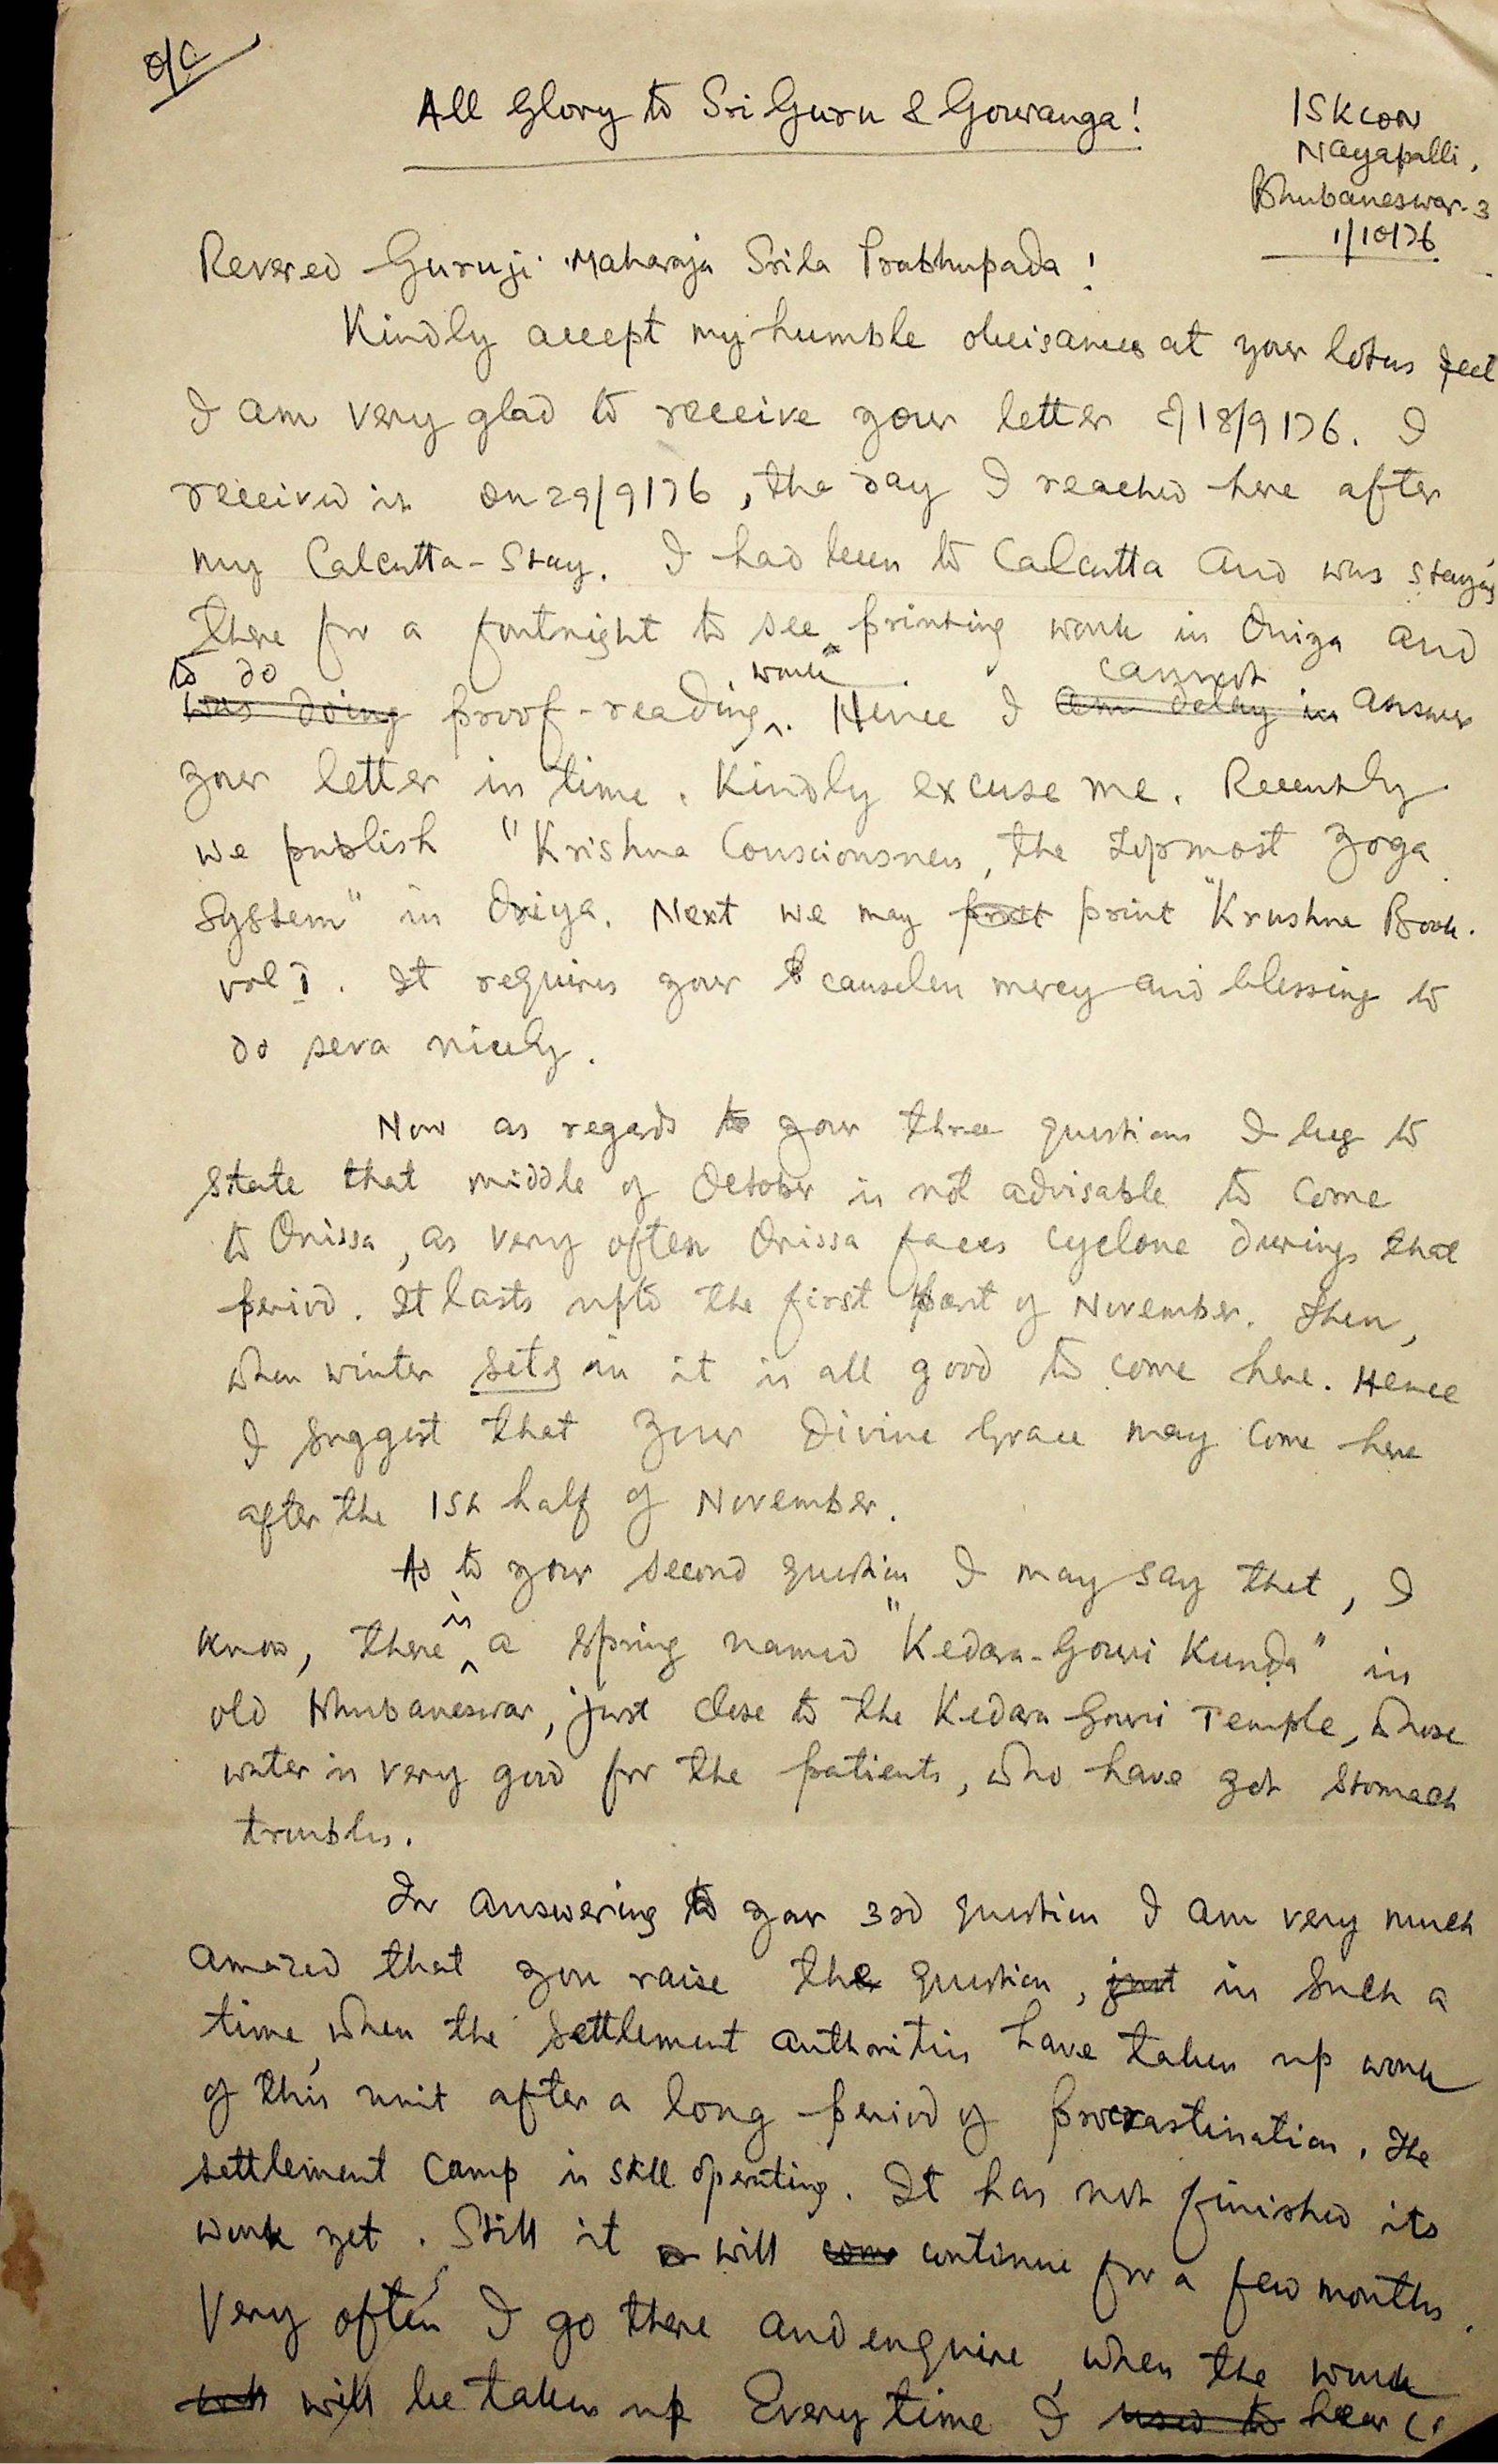 O/C
All Glory to Sri Guru & Gouranga!
ISKCON
Nayapalli,
Bhubaneswar-3
1/10/76
Revered Guruji Maharaja Srila Prabhupada!
Kindly accept my humble obeisances at your lotus feet
I am very glad to receive your letter of 18/9/76. I
received it on 29/9/76, the day I reached here after
my Calcutta-Stay. I had been to Calcutta and was staying
there for a fortnight to see printing work in Oriya and
to do work cannot
was doing proof-reading. Hence I am delay in answer
your letter in time. Kindly excuse me. Recently
we publish "Krishna Consciousness, the Topmost Yoga
System" in Oriya. Next we may print "Krushna Book.
vol I. It requires your causeless mercy and blessing to
do seva nicely.
Now as regards to your three questions I beg to
state that middle of October is not advisable to come
to Orissa, as very often Orissa faces cyclone during that
period. It lasts upto the first part of November. Then,
when winter sets in it is all good to come here. Hence
I suggest that your Divine Grace may come here
after the 1st half of November.
As to your second question I may say that, I
is
know, there a spring named "Kedara-Gouri Kunda" in
old Bhubaneswar, just close to the Kedara Gouri Temple, whose
water is very good for the patients, who have got stomach
troubles.
In answering to your 3rd question I am very much
amazed that you raise the question, just in such a
time, when the settlement authorities have taken up work
of this unit after a long period of procrastination. The
settlement camp is still operating. It has not finished its
work yet. Still it will come continue for a few months.
Very often I go there and enquire, when the work
will will be taken up Every time I used to hear